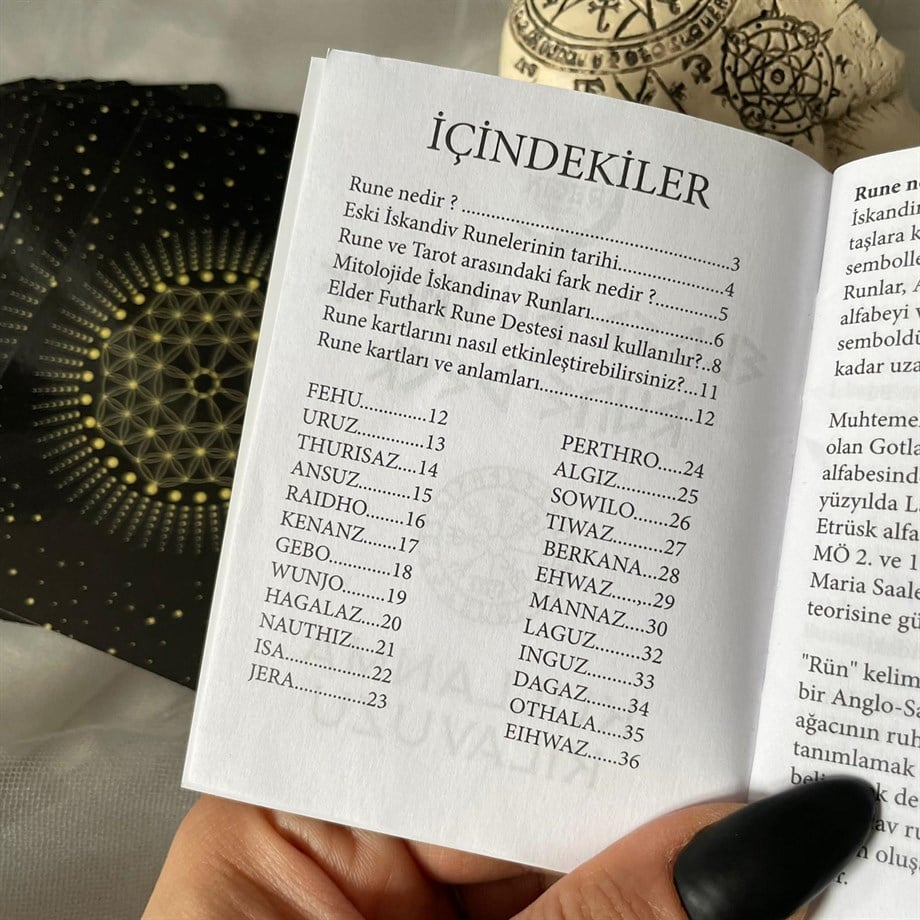 İÇİNDEKİLER
Rune nedir ? ..............................................3
Eski İskandiv Runelerinin tarihi...................4
Rune ve Tarot arasındaki fark nedir ?...........5
Mitolojide İskandinav Runları......................6
Elder Futhark Rune Destesi nasıl kullanılır?..8
Rune kartlarını nasıl etkinleştirebilirsiniz?...11
Rune kartları ve anlamları...........................12
FEHU............12
URUZ............13
THURISAZ....14
ANSUZ..........15
RAIDHO........16
KENANZ.......17
GEBO.............18
WUNJO.........19
HAGALAZ....20
NAUTHIZ....21
ISA................22
JERA..............23
PERTHRO.....24
ALGIZ............25
SOWILO........26
TIWAZ...........27
BERKANA...28
EHWAZ.....,..29
MANNAZ....30
LAGUZ.........32
INGUZ..........33
DAGAZ.........34
OTHALA.....35
EIHWAZ......36
Rune
taşlara
Runlar,
alfabeyi
kadar
olan
alfabesinde
yüzyılda
Etrüsk
MÖ 2. ve 1
Maria
teorisine
"Rün"
bir
ağacının
tanımlamak